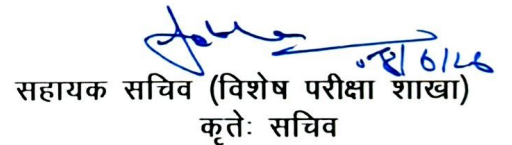 सहायक सचिव (विशेष परीक्षा शाखा)
कृतेः सचिव